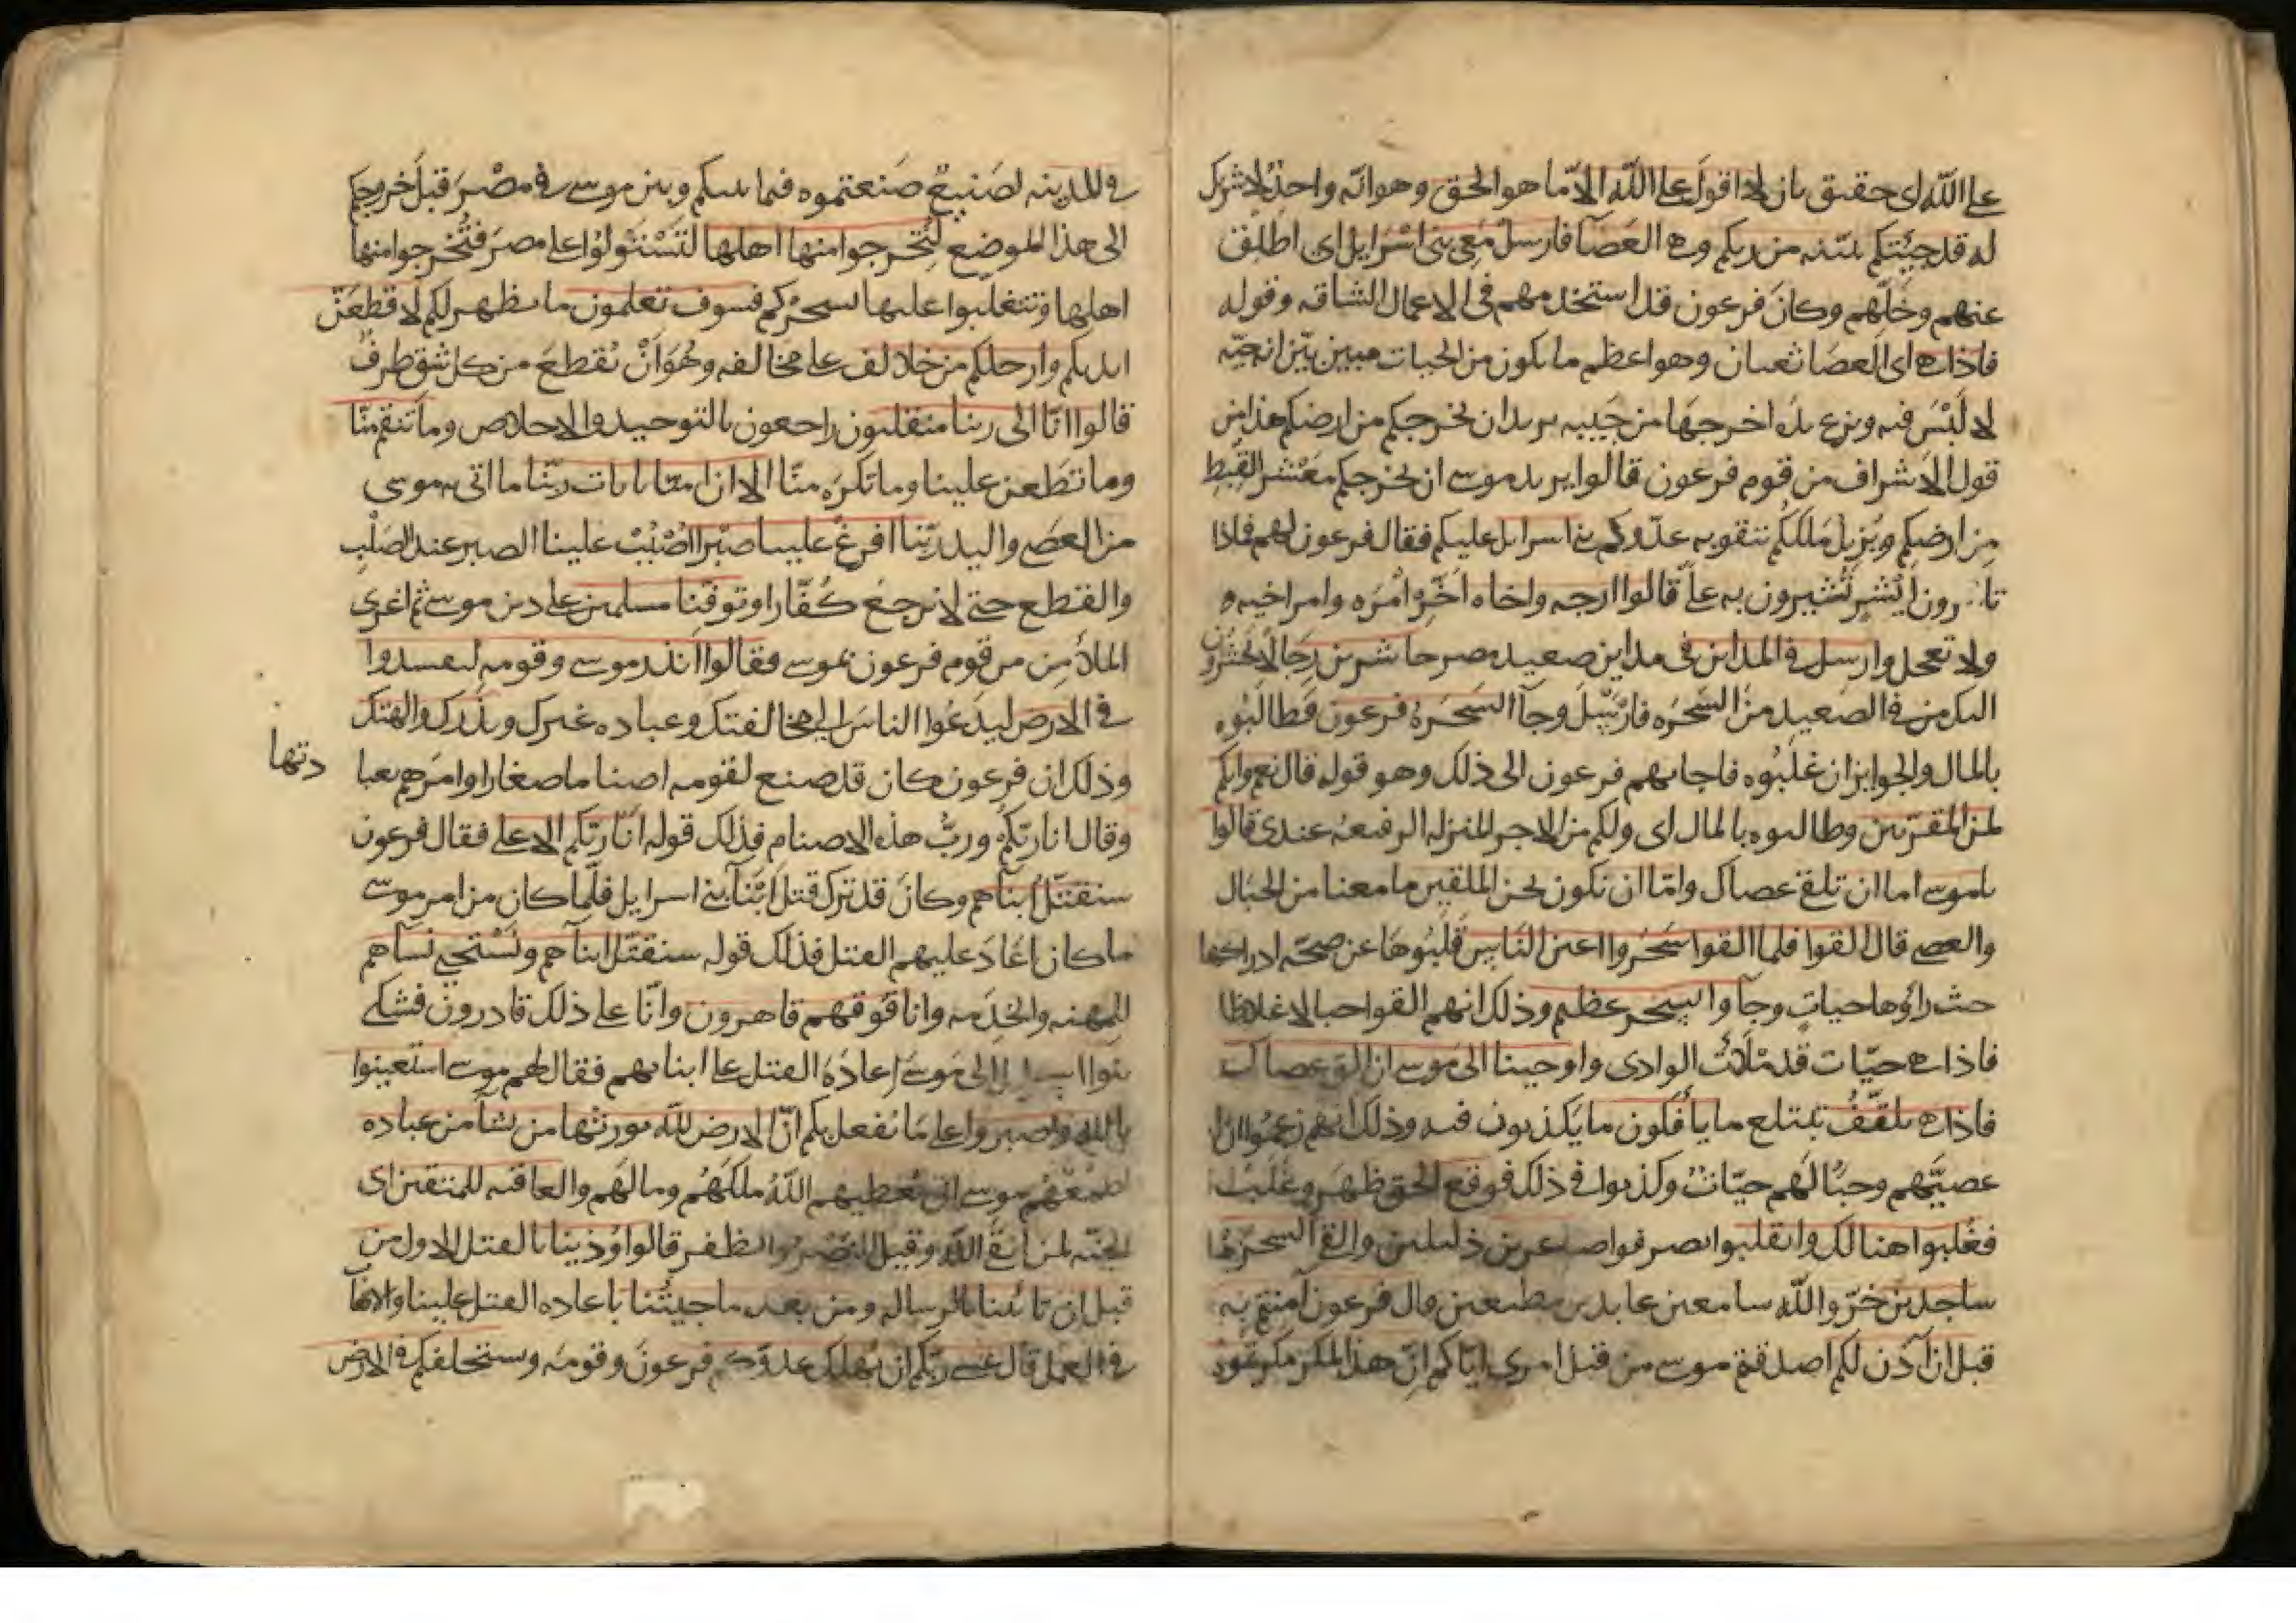 على الله اى حقيق بان لا اقول على الله الا ما هو الحق وهو انه واحد لا شريك
له قد جيئتكم ببينه من ربكم وهى العصا فارسل معى بنى اسرايل اى اطلق
عنهم وخلهم وكان فرعون قد استخدمهم فى الاعمال الشاقه وقوله
فاذا هى اى العصا ثعبان وهو اعظم ما يكون من الحيات مبين بيّن انه حيّه
لا لبس فيه ونزع يده اخرجها من جيبه يريد ان يخرجكم من ارضكم هذا من
قول الاشراف من قوم فرعون قالوا يريد موسى ان يخرجكم معشر القبط
من ارضكم ويزيل ملككم بتقويه عدوكم بنى اسرايل عليكم فقال فرعون لهم فماذا
تأمرون ايش تشيرون به علىّ قالوا ارجه واخاه اخّر امره وامر اخيه
ولا تعجل وارسل فى المداين فى مداين صعيد مصر حاشرين رجالا يحشرون
اليك من فى الصعيد من السحره فارسل وجآ السحره فرعون فطالبوه
بالمال والجوايز ان غلبوه فاجابهم فرعون الى ذلك وهو قوله قال نعم وانكم
لمن المقربين وطالبوه بالمال اى ولكم من الاجر المنزله الرفيعه عندى قالوا
ياموسى اما ان تلقى عصاك واما ان نكون نحن الملقين ما معنا من الحبال
والعصى قال القوا فلما القوا سحروا اعين الناس قلبوها عن صحه ادراكها
حيث راوها حيات وجآوا بسحر عظيم وذلك انهم القوا حبالا غلاظا
فاذا هى حيّات قد ملأت الوادى واوحينا الى موسى ان الق عصاك
فاذا هى تلقف تبتلع ما يأفكون ما يكذبون فيه وذلك انهم زعموا ان
عصيّهم وحبالهم حيّات وكذبوا فى ذلك فوقع الحق ظهر وغلب
فغلبوا هنالك وانقلبوا انصرفوا صاغرين ذليلين والقى السحره
ساجدين خرّوا لله سامعين عابدين مطيعين قال فرعون آمنتم به
قبل ان آذن لكم اصدقتم موسى من قبل امرى اياكم ان هذا لمكر مكرتموه
فى المدينه لصنيع صنعتموه فيما بينكم وبين موسى فى مصر قبل خروجكم
الى هذا الموضع لتخرجوا منها اهلها لتستولوا على مصر فتخرجوا منها
اهلها وتتغلبوا عليها بسحركم فسوف تعلمون ما يظهر لكم لاقطعن
ايديكم وارجلكم من خلاف على مخالفه وهو ان يقطع من كل شق طرف
قالوا انا الى ربنا منقلبون راجعون بالتوحيد والاخلاص وما تنقم منا
وما تطعن علينا وما تكره منا الا ان امنا بايات ربنا ما اتى به موسى
من العصى واليد ربنا افرغ علينا صبرا اصبب علينا الصبر عند الصلب
والقطع حتى لا نرجع كفارا وتوفنا مسلمين على دين موسى ثم اغرى
الملأ من قوم فرعون بموسى فقالوا اتذر موسى وقومه ليفسدوا
فى الارض ليدعوا الناس الى مخالفتك وعباده غيرك ويذرك والهتك
وذلك ان فرعون كان قد صنع لقومه اصناما صغارا وامرهم بعبا
دتها
وقال انا ربكم ورب هذه الاصنام فذلك قوله انا ربكم الاعلى فقال فرعون
سنقتل ابنآهم وكان قد ترك قتل ابنآ بنى اسرايل فلما كان من امر موسى
ما كان اعاد عليهم القتل فذلك قوله سنقتل ابنآهم ونستحيى نسآهم
للمهنه والخدمه وانا فوقهم قاهرون وانا على ذلك قادرون فشكى
بنوا اسرايل الى موسى اعاده القتل على ابنايهم فقال لهم موسى استعينوا
بالله واصبروا على ما يفعل بكم ان الارض لله يورثها من يشا من عباده
اطمعهم موسى ان يعطيهم الله ملكهم ومالهم والعاقبه للمتقين اى
الجنه لمن اتقى الله وقيل النصر والظفر قالوا اوذينا بالقتل الاول من
قبل ان تاتينا بالرساله ومن بعد ما جيتنا باعاده القتل علينا
فى العمل قال عسى ربكم ان يهلك عدوكم فرعون وقومه ويستخلفكم فى الارض